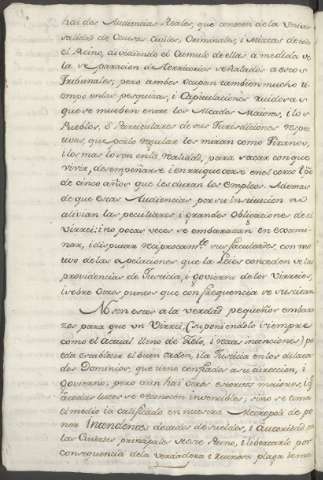 hai dos Audiencias Reales, que conocen de la Univer
salidad de Causas Civiles, Criminales, i Mixtas de todo
el Reino, dividiendo el Cumulo de ellas a medida de
la separacion de territorios señalados a estos
Tribunales; pero ambos ocupan tambien mucho ti
empo en las pesquizas, i Capitulaciones ruidosas
que se mueben entre los Alcaldes Maiores, i los
Pueblos, ò Particulares de sus Jurisdicciones respec
tivas, que por lo regular los miran como Tiranos,
i los mas lo son en la realidad, para sacar con que
vivir, desempeñarse i enriquecerse en el corto
de cinco años que les duran los empleos. Ademas
de que estas Audiencias por su Institucion no
alivian las peculiares i grandes Obligaciones de el
Virrei: i no pocas veces se embarazan en exami
nar, i disputar reciprocamte. sus facultades, con mo
tivo de las apelaciones que la Leies conceden de las
providencias de Justicia, i govierno de los Virreies,
i sobre otros puntos que con frequencia se suscitan
No son estos a la verdad pequeños embara
zos para que un Virrei (suponiendolo siempre
como el Actual lleno de Zelo, i rectas intenciones) pu
eda establecer el buen orden, i la Justicia en los dilata
dos Dominios, que tiene confiados a su direccion, i
govierno; pero aun hai otros estorvos maiores, i
a todas luces se reconocen invencibles, sino se toma
el medio ia calificado en nuestra Metropoli de po
ner Intendentes dotados de sueldos, i autoridad en
las Ciudades principales de este Reino, i libertarlo por
consequencia de la verdadera i ruinosa plaga de mas